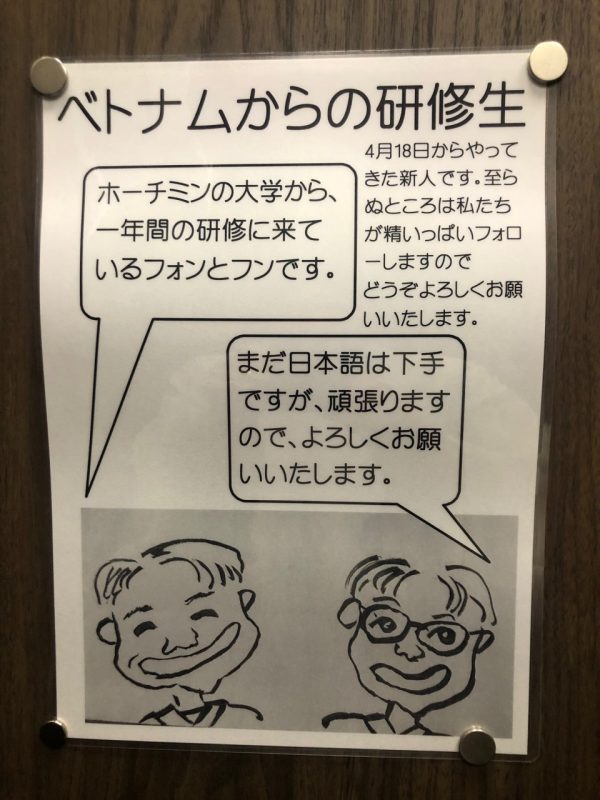 ベトナムからの研修生
4月18日からやって
きた新人です。至ら
ぬところは私たち
が精いっぱいフォロ
ーしますので
どうぞよろしくお願
いいたします。
ホーチミンの大学から、
一年間の研修に来て
いるフォンとフンです。
まだ日本語は下手
ですが、頑張ります
ので、よろしくお願
いいたします。